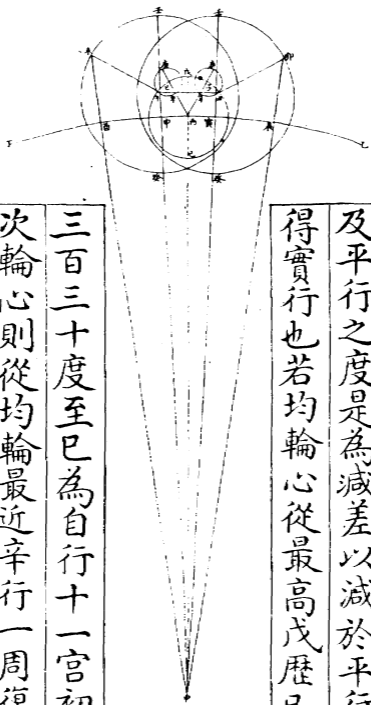 及平行之度是為減差以減於平行
得實行也若均輪心從最高戊歷
三百三十度至巳為自行十一宮初
次輪心則從均輪最近辛行一周復
壬
壬
卯
丁
乙
酉
申
丙
寅
辰
癸
癸